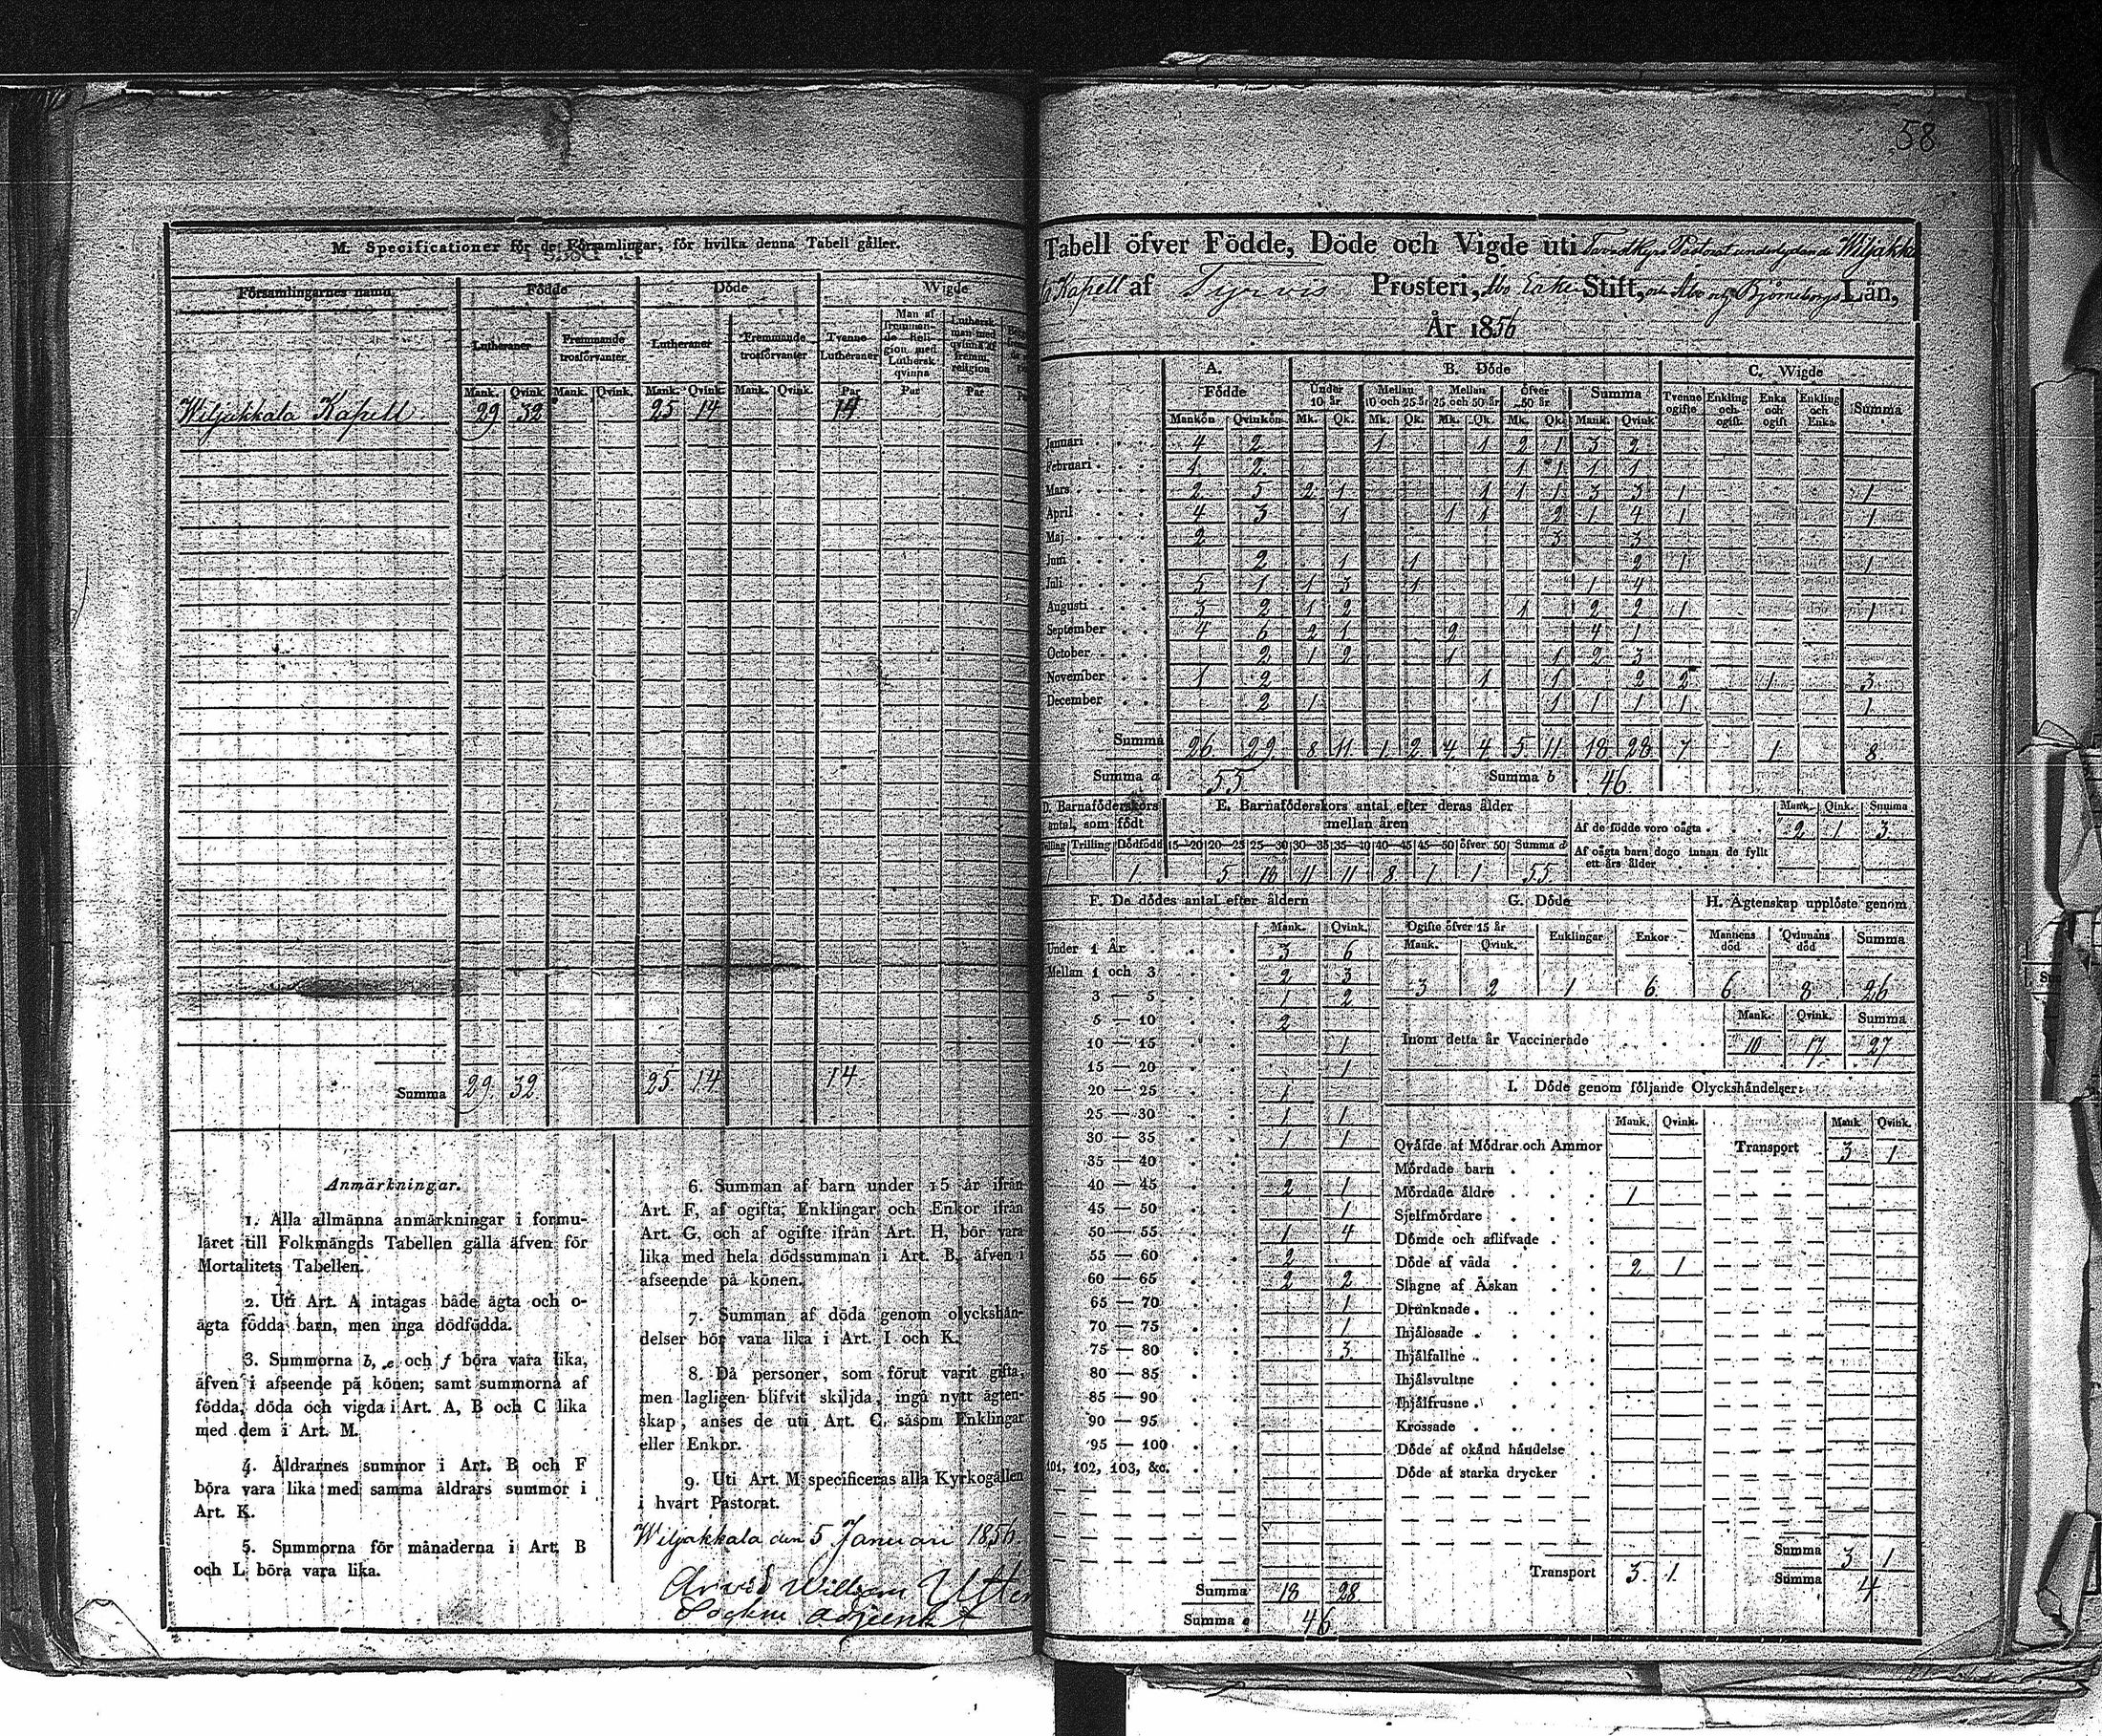 M. Specificationer för de Församlingar, för hvilka denna Tabell gäller.
Församlingarnes namn Födde Döde Wigde
Lutheraner Fremmande trosförvanter Lutheraner Fremmande trosförvanter Tvenne Lutheraner Man af fremmande Religion med Luthersk qvinna Luthersk man med qvinna af fremm. religion
Mank. Qvink. Mank. Qvink. Mank. Qvink. Mank. Qvink. Par Par Par
Wiljakkala Kapell 29 32 25 14 14
Summa 29. 32 25 14 14.
Anmärkningar.
1. Alla allmänna anmärkningar i formu-
läret till Folkmängds Tabellen gälla äfven för
Mortalitets Tabellen.
2. Uti Art. A intagas både ägta och o-
ägta födda barn, men inga dödfödda.
3. Summorna b, e och f böra vara lika,
äfven i afseende på könen; samt summorna af
födda, döda och vigda i Art. A, B och C lika
med dem i Art. M.
4. Åldrarnes summor i Art. B och F
böra vara lika med samma åldrars summor i
Art. K.
5. Summorna för månaderna i Art. B
och L böra vara lika.
6. Summan af barn under 15 år ifrån
Art. F, af ogifta, Enklingar och Enkor ifrån
Art. G, och af ogifte ifrån Art. H, bör vara
lika med hela dödssumman i Art. B, äfven i
afseende på könen.
7. Summan af döda genom olyckshän-
delser bör vara lika i Art. I och K.
8. Då personer, som förut varit gifta,
men lagligen blifvit skiljda, ingå nytt ägten-
skap, anses de uti Art. C. såsom Enklingar
eller Enkor.
9. Uti Art. M specificeras alla Kyrkogällen
i hvart Pastorat.
Wiljakkala den 5 Januari 1856
Arvid William Utter
Sockne adjunkt
58
Tabell öfver Födde, Döde och Vigde uti Tavastkyro Pastorat underlydande Wiljakka
la Kapell af Tyrvis Prosteri, Åbo Erke Stift, och Åbo och Björneborgs Län,
År 1856
A. Födde B. Döde C. Wigde
Under 10 år. Mellan 10 och 25 år Mellan 25 och 50 år öfver 50 år Summa Tvenne ogifte Enkling och ogift. Enka och ogift Enkling och Enka Summa
Mankön Qvinkön Mk. Qk. Mk. Qk. Mk. Qk. Mk. Qk. Mank. Qvink.
Januari 4 2 1 1 2 1 3 2
Februari 1 2 1 1 1 1
Mars 2 5 2 1 1 1 1 3 3 1 1
April 4 3 1 1 1 2 1 4 1 1
Maj 2 3 3
Juni 2 1 1 2 1 1
Juli 5 1 1 3 1 1 4
Augusti 3 2 1 2 1 2 2 1 1
September 4 6 2 1 2 4 1
October 2 1 2 1 1 2 3
November 1 2 1 1 2 2 1 3
December 2 1 1 1 1 1 1
Summa 26 29. 8 11 1 2 4 4 5 11 18 28 7 1 8
Summa a 55 Summa b 46
D. Barnaföderskors antal, som födt E. Barnaföderskors antal efter deras ålder mellan åren Mank. Qink. Summa
Af de födde voro oägta 2 1 3
Af oägta barn dogo innan de fyllt ett års ålder
Trilling Dödfödd 15—20 20—25 25—30 30—35 35—40 40—45 45—50 öfver 50 Summa d
1 1 5 18 11 11 8 1 1 55
F. De dödes antal efter åldern G. Döde H. Ägtenskap upplöste genom
Mank. Qvink. Ogifte öfver 15 år Mank. Qvink. Enklingar Enkor Mannens död Qvinnans död Summa
3 2 1 6 6 8 26
Under 1 År 3 6
Mellan 1 och 3 2 3
3 — 5 1 2
5 — 10 2
10 — 15 1
15 — 20 1
20 — 25 1
25 — 30 1 1
30 — 35 1 1
35 — 40
40 — 45 2 1
45 — 50 1
50 — 55 1 4
55 — 60 2
60 — 65 2 2
65 — 70 1
70 — 75 1
75 — 80 3
80 — 85
85 — 90
90 — 95
95 — 100
101, 102, 103, &c.
Summa 18 28
Summa e 46
Mank. Qvink. Summa
Inom detta år Vaccinerade 10 17 27
I. Döde genom följande Olyckshändelser:
Mank. Qvink. Mank. Qvink.
Qväfde af Mödrar och Ammor Transport 3 1
Mördade barn
Mördade äldre 1
Sjelfmördare
Dömde och aflifvade
Döde af våda 2 1
Slagne af Åskan
Drunknade
Ihjälosade
Ihjälfallne
Ihjälsvultne
Ihjälfrusne
Krossade
Döde af okänd händelse
Döde af starka drycker
Summa 3 1
Transport 3 1 Summa 4